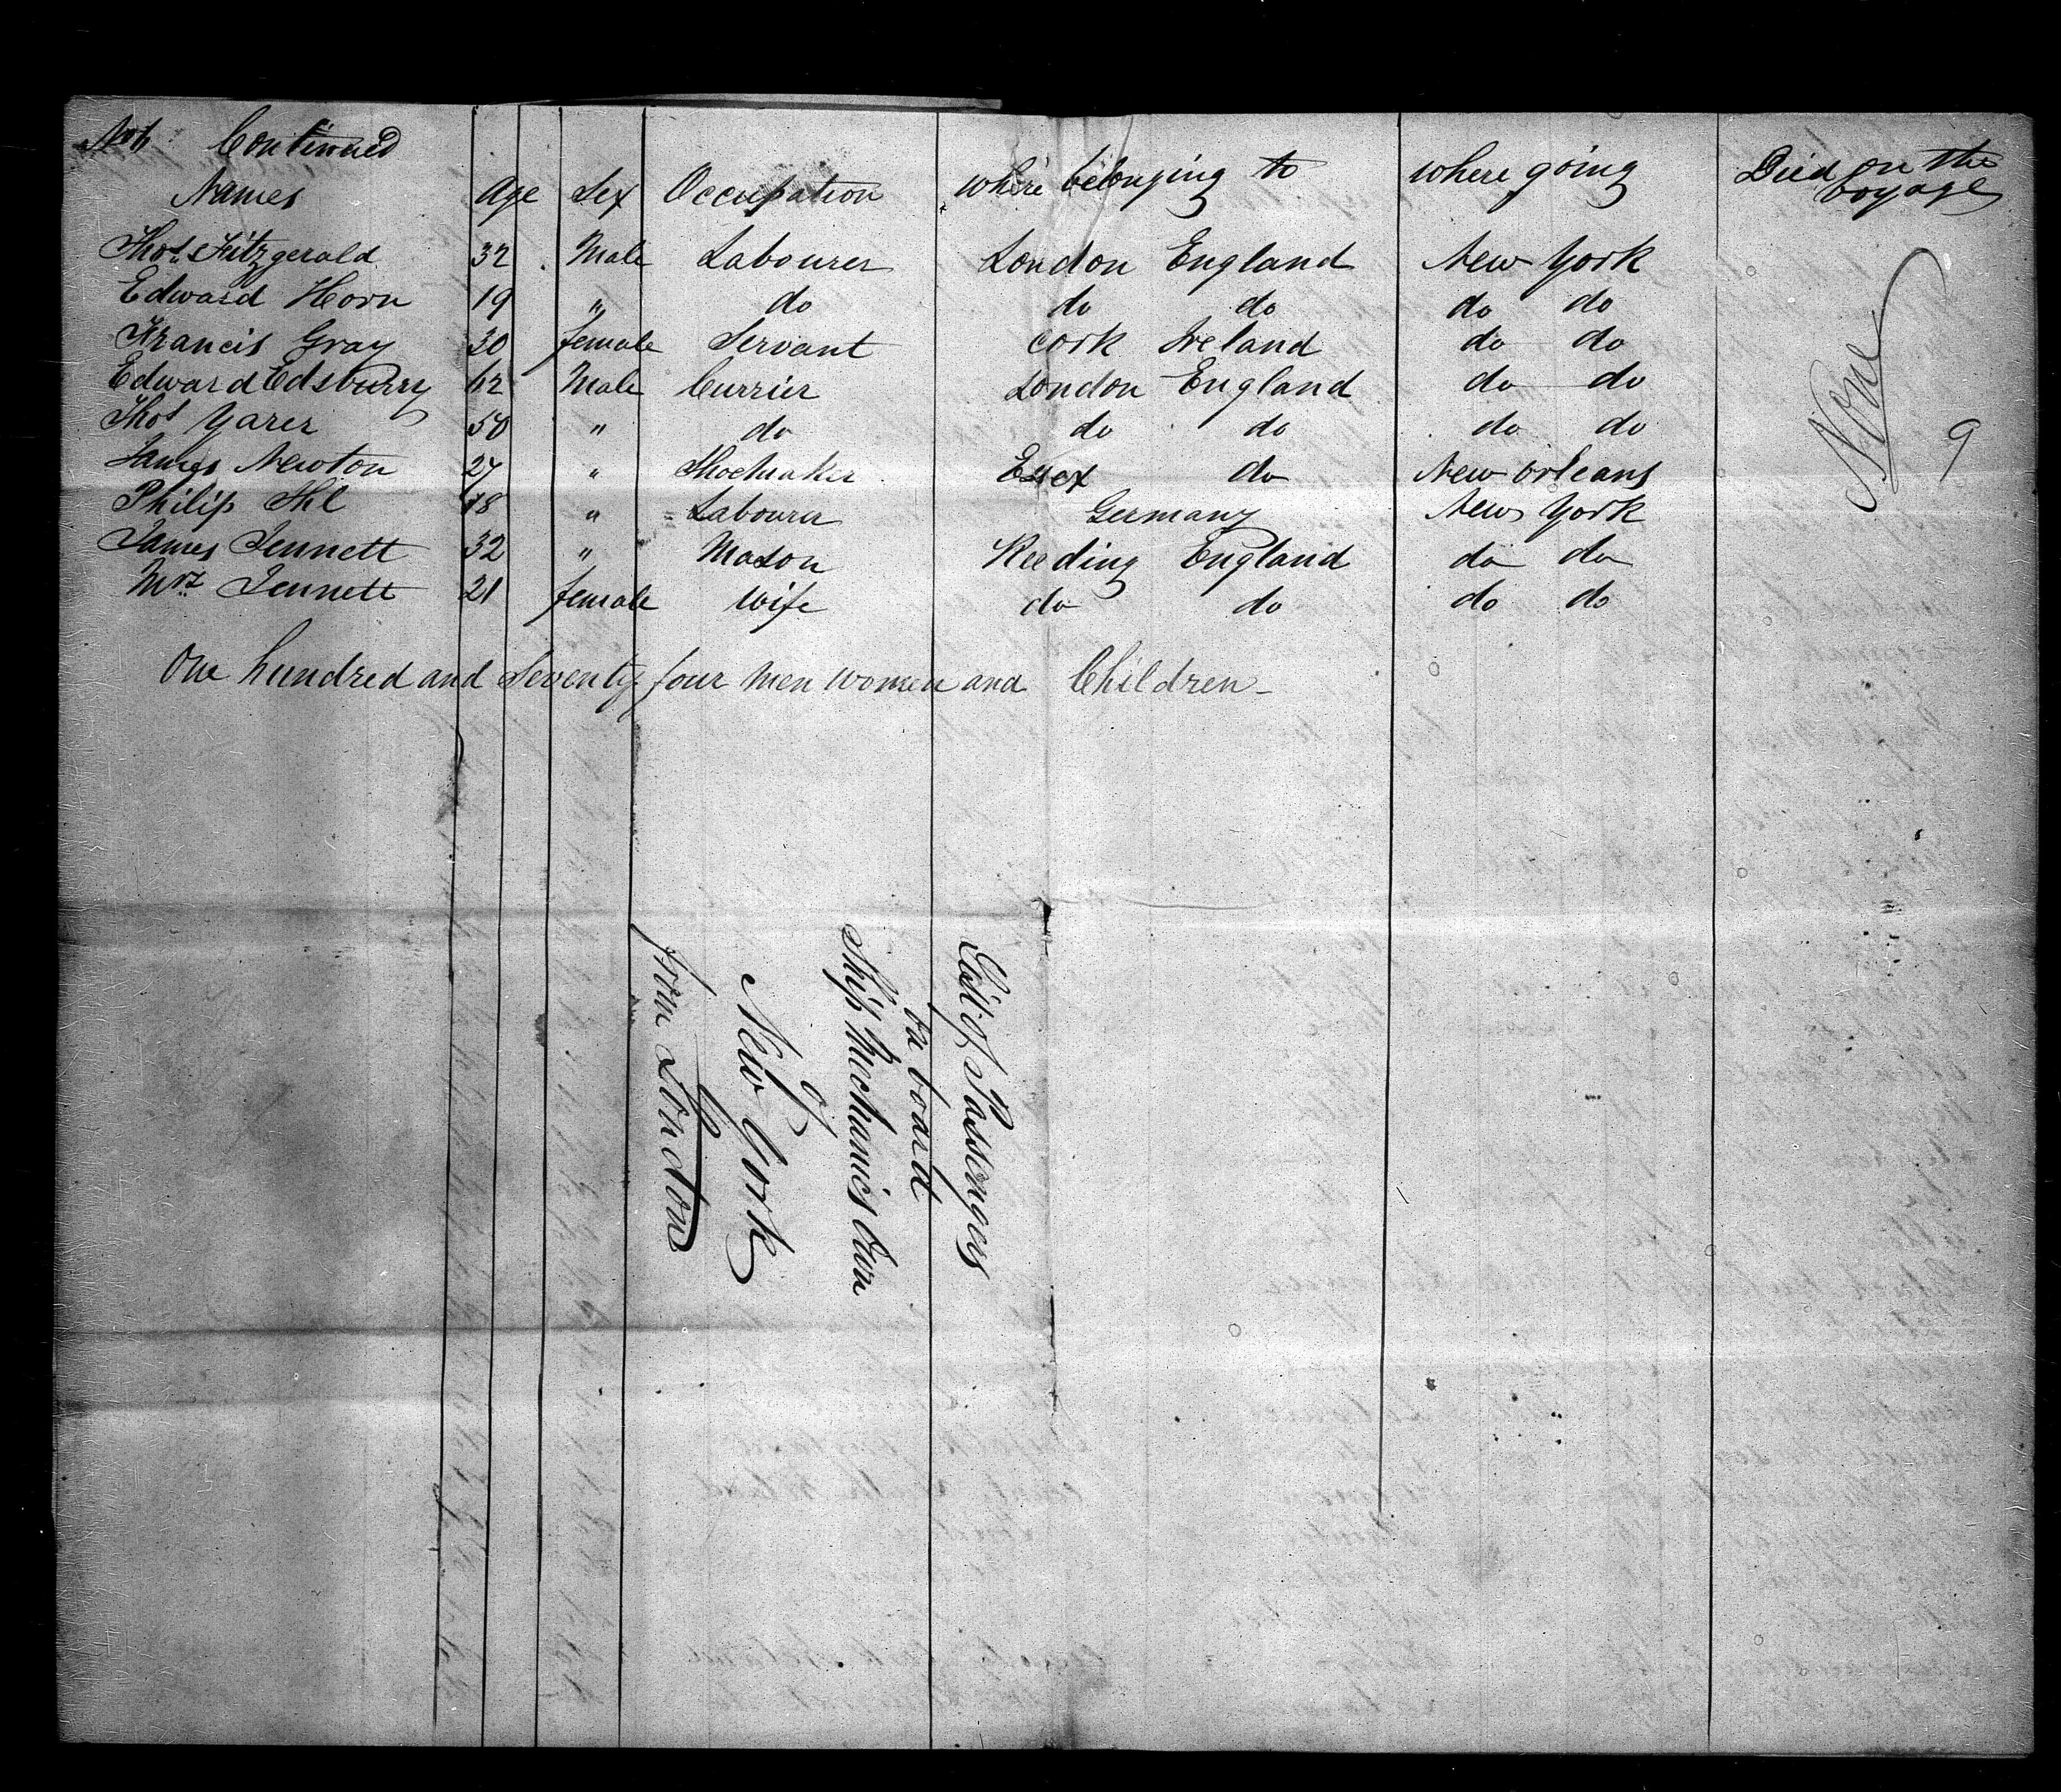 No 6 Continued
Names Age Sex Occupation where belonging to where going Died on the voyage
Thos Fitzgerald 32 Male Labourer London England New York
Edward Horn 19 " do do do do do
Francis Gray 30 female Servant Cork Ireland do do
Edward Edsburry 62 Male Currier London England do do
Thos Yarer 50 " do do do do do
James Newton 27 " Shoemaker Essex do New Orleans
Philip Ihl 18 " Labourer Germany New York
James Jennett 32 " Mason Reeding England do do
Mrs Jennett 21 female Wife do do do do
None
9
One hundred and Seventy four men women and Children
List of Passengers
on board
Ship Mechanics Own
of
New York
from London